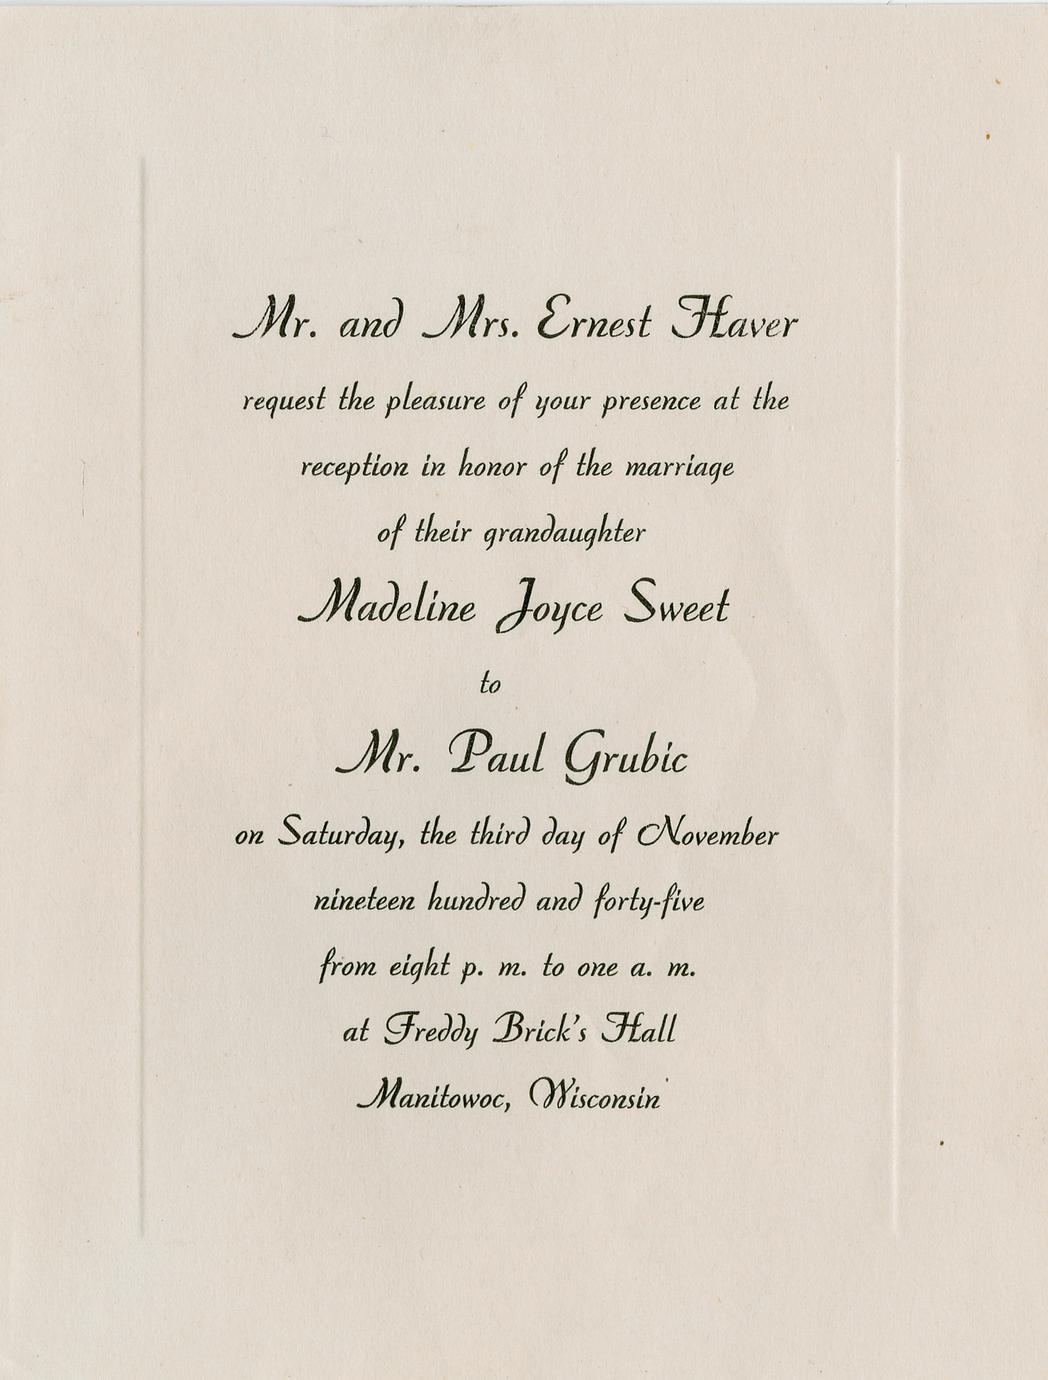 Mr. and Mrs. Ernest Haver
request the pleasure of your presence at the
reception in honor of the marriage
of their grandaughter
Madeline Joyce Sweet
to
Mr. Paul Grubic
on Saturday, the third day of November
nineteen hundred and forty-five
from eight p. m. to one a. m.
at Freddy Brick's Hall
Manitowoc, Wisconsin